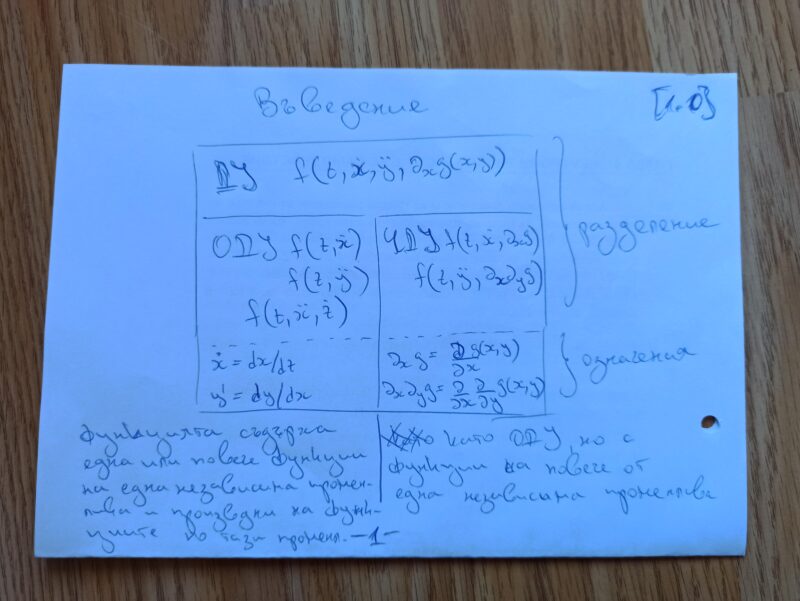 Въведение
[1.0]
ДУ f(t, ẍ, ÿ, ∂ₓg(x,y))
ОДУ f(t, ẍ)
f(t, ÿ)
f(t, ẍ, ż)
ЧДУ f(t, ẍ, ∂ₓg)
f(t, ÿ, ∂ₓ∂ᵧg)
разделение
ẋ = dx/dt
y' = dy/dx
∂ₓg = ∂g(x,y)/∂x
∂ₓ∂ᵧg = ∂/∂x ∂/∂y g(x,y)
означения
функцията съдържа
една или повече функции
на една независима промен-
лива и производни на функ-
циите по тази променл.
като ОДУ, но с
функции на повече от
една независима променлива
-1-